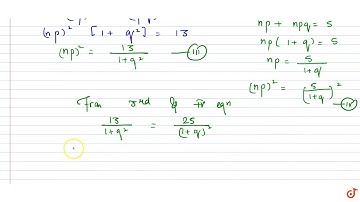 (np)² [1 + q²] = 13
(np)² = 13/(1+q²) — (iii)
np + npq = 5
np (1 + q) = 5
np = 5/(1+q)
(np)² = 5²/(1+q)² — (iv)
From 3rd & iv eqn
13/(1+q²) = 25/(1+q)²